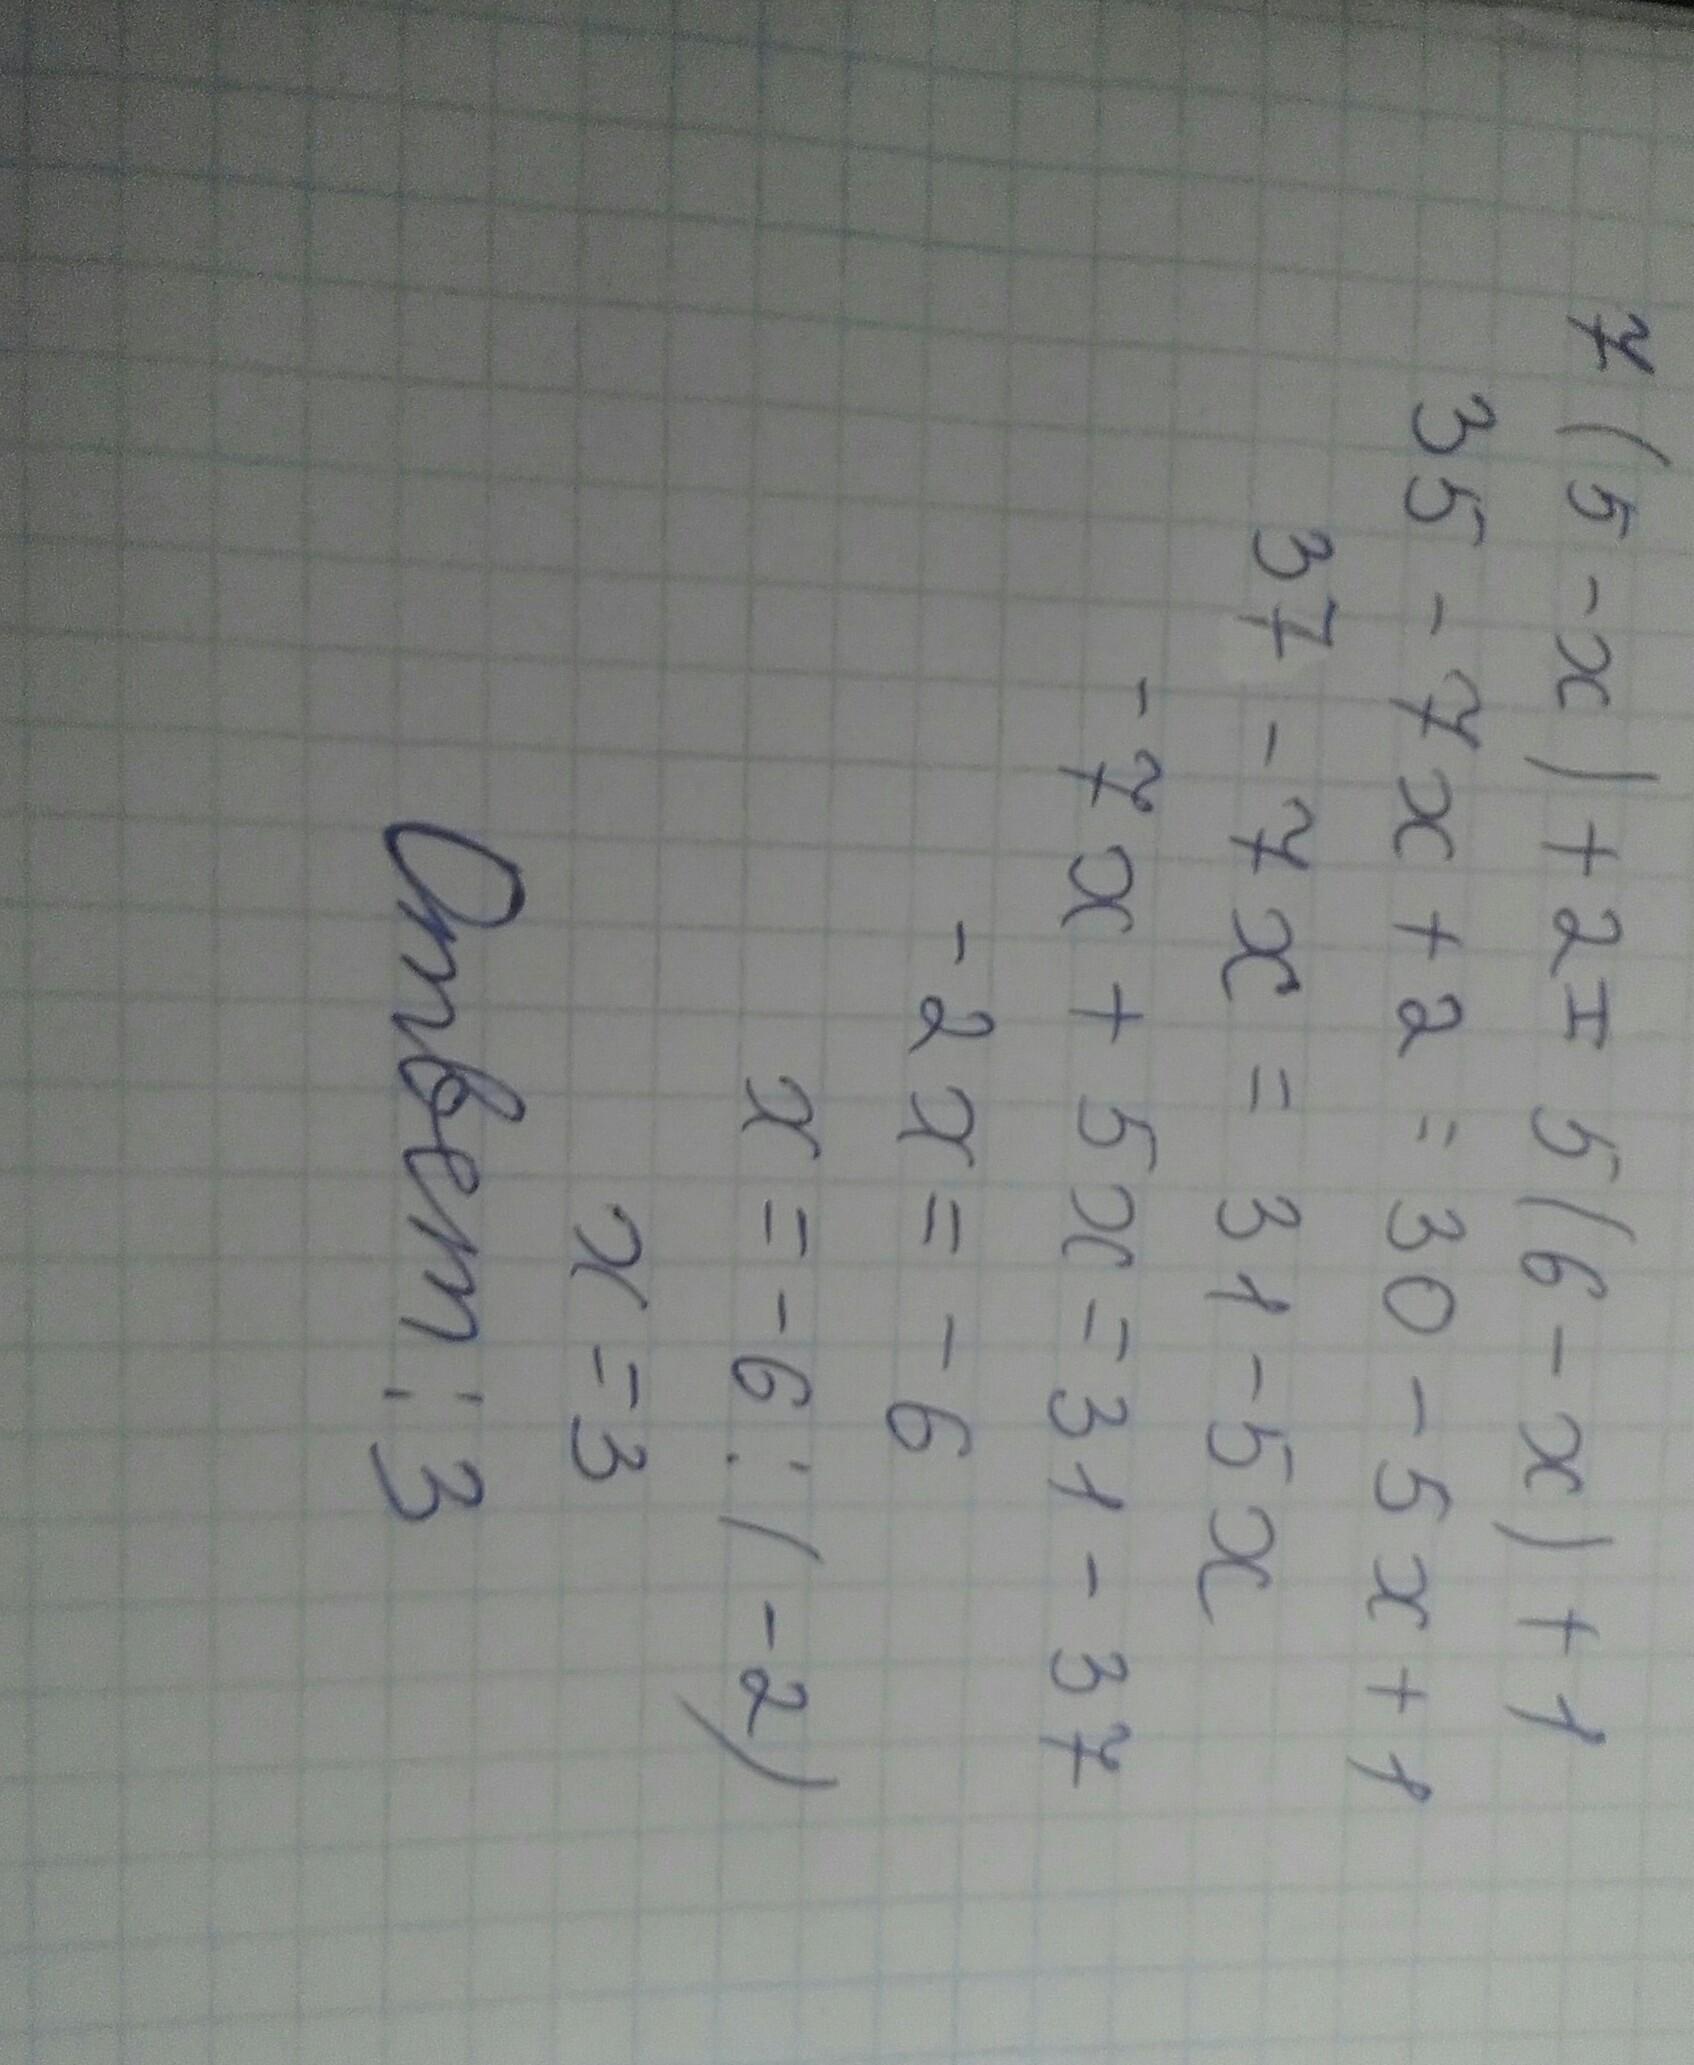 7(5-x)+2=5(6-x)+1
35-7x+2=30-5x+1
37-7x=31-5x
-7x+5x=31-37
-2x=-6
x=-6:(-2)
x=3
Ответ: 3